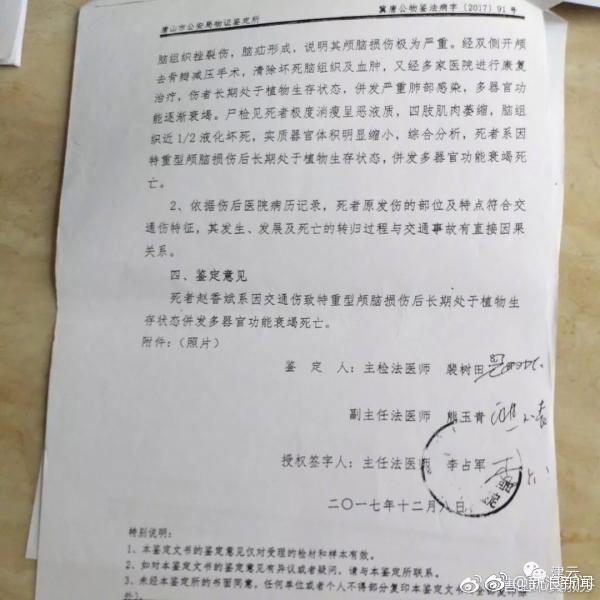 唐山市公安局物证鉴定所 冀唐公物鉴法病字(2017)91号
脑组织挫裂伤，脑疝形成，说明其颅脑损伤极为严重。经双侧开颅
去骨瓣减压手术，清除坏死脑组织及血肿，又经多家医院进行康复
治疗，伤者长期处于植物生存状态，併发严重肺部感染，多器官功
能逐渐衰竭。尸检见死者极度消瘦呈恶液质，四肢肌肉萎缩，脑组
织近1/2液化坏死，实质器官体积明显缩小，综合分析，死者系因
特重型颅脑损伤后长期处于植物生存状态，併发多器官功能衰竭死
亡。
2、依据伤后医院病历记录，死者原发伤的部位及特点符合交
通伤特征，其发生、发展及死亡的转归过程与交通事故有直接因果
关系。
四、鉴定意见
死者赵香斌系因交通伤致特重型颅脑损伤后长期处于植物生
存状态併发多器官功能衰竭死亡。
附件：（照片）
鉴 定 人：主检法医师 裴树田
副主任法医师 熊玉青
授权签字人：主任法医师 李占军
二〇一七年十二月八日
特别说明：
1、本鉴定文书的鉴定意见仅对受理的检材和样本有效。
2、如对本鉴定文书的鉴定意见有异议或者疑问，请与本鉴定所联系。
3、未经本鉴定所的书面同意，任何单位或者个人不得部分复印本鉴定文书
津云
@新浪新闻